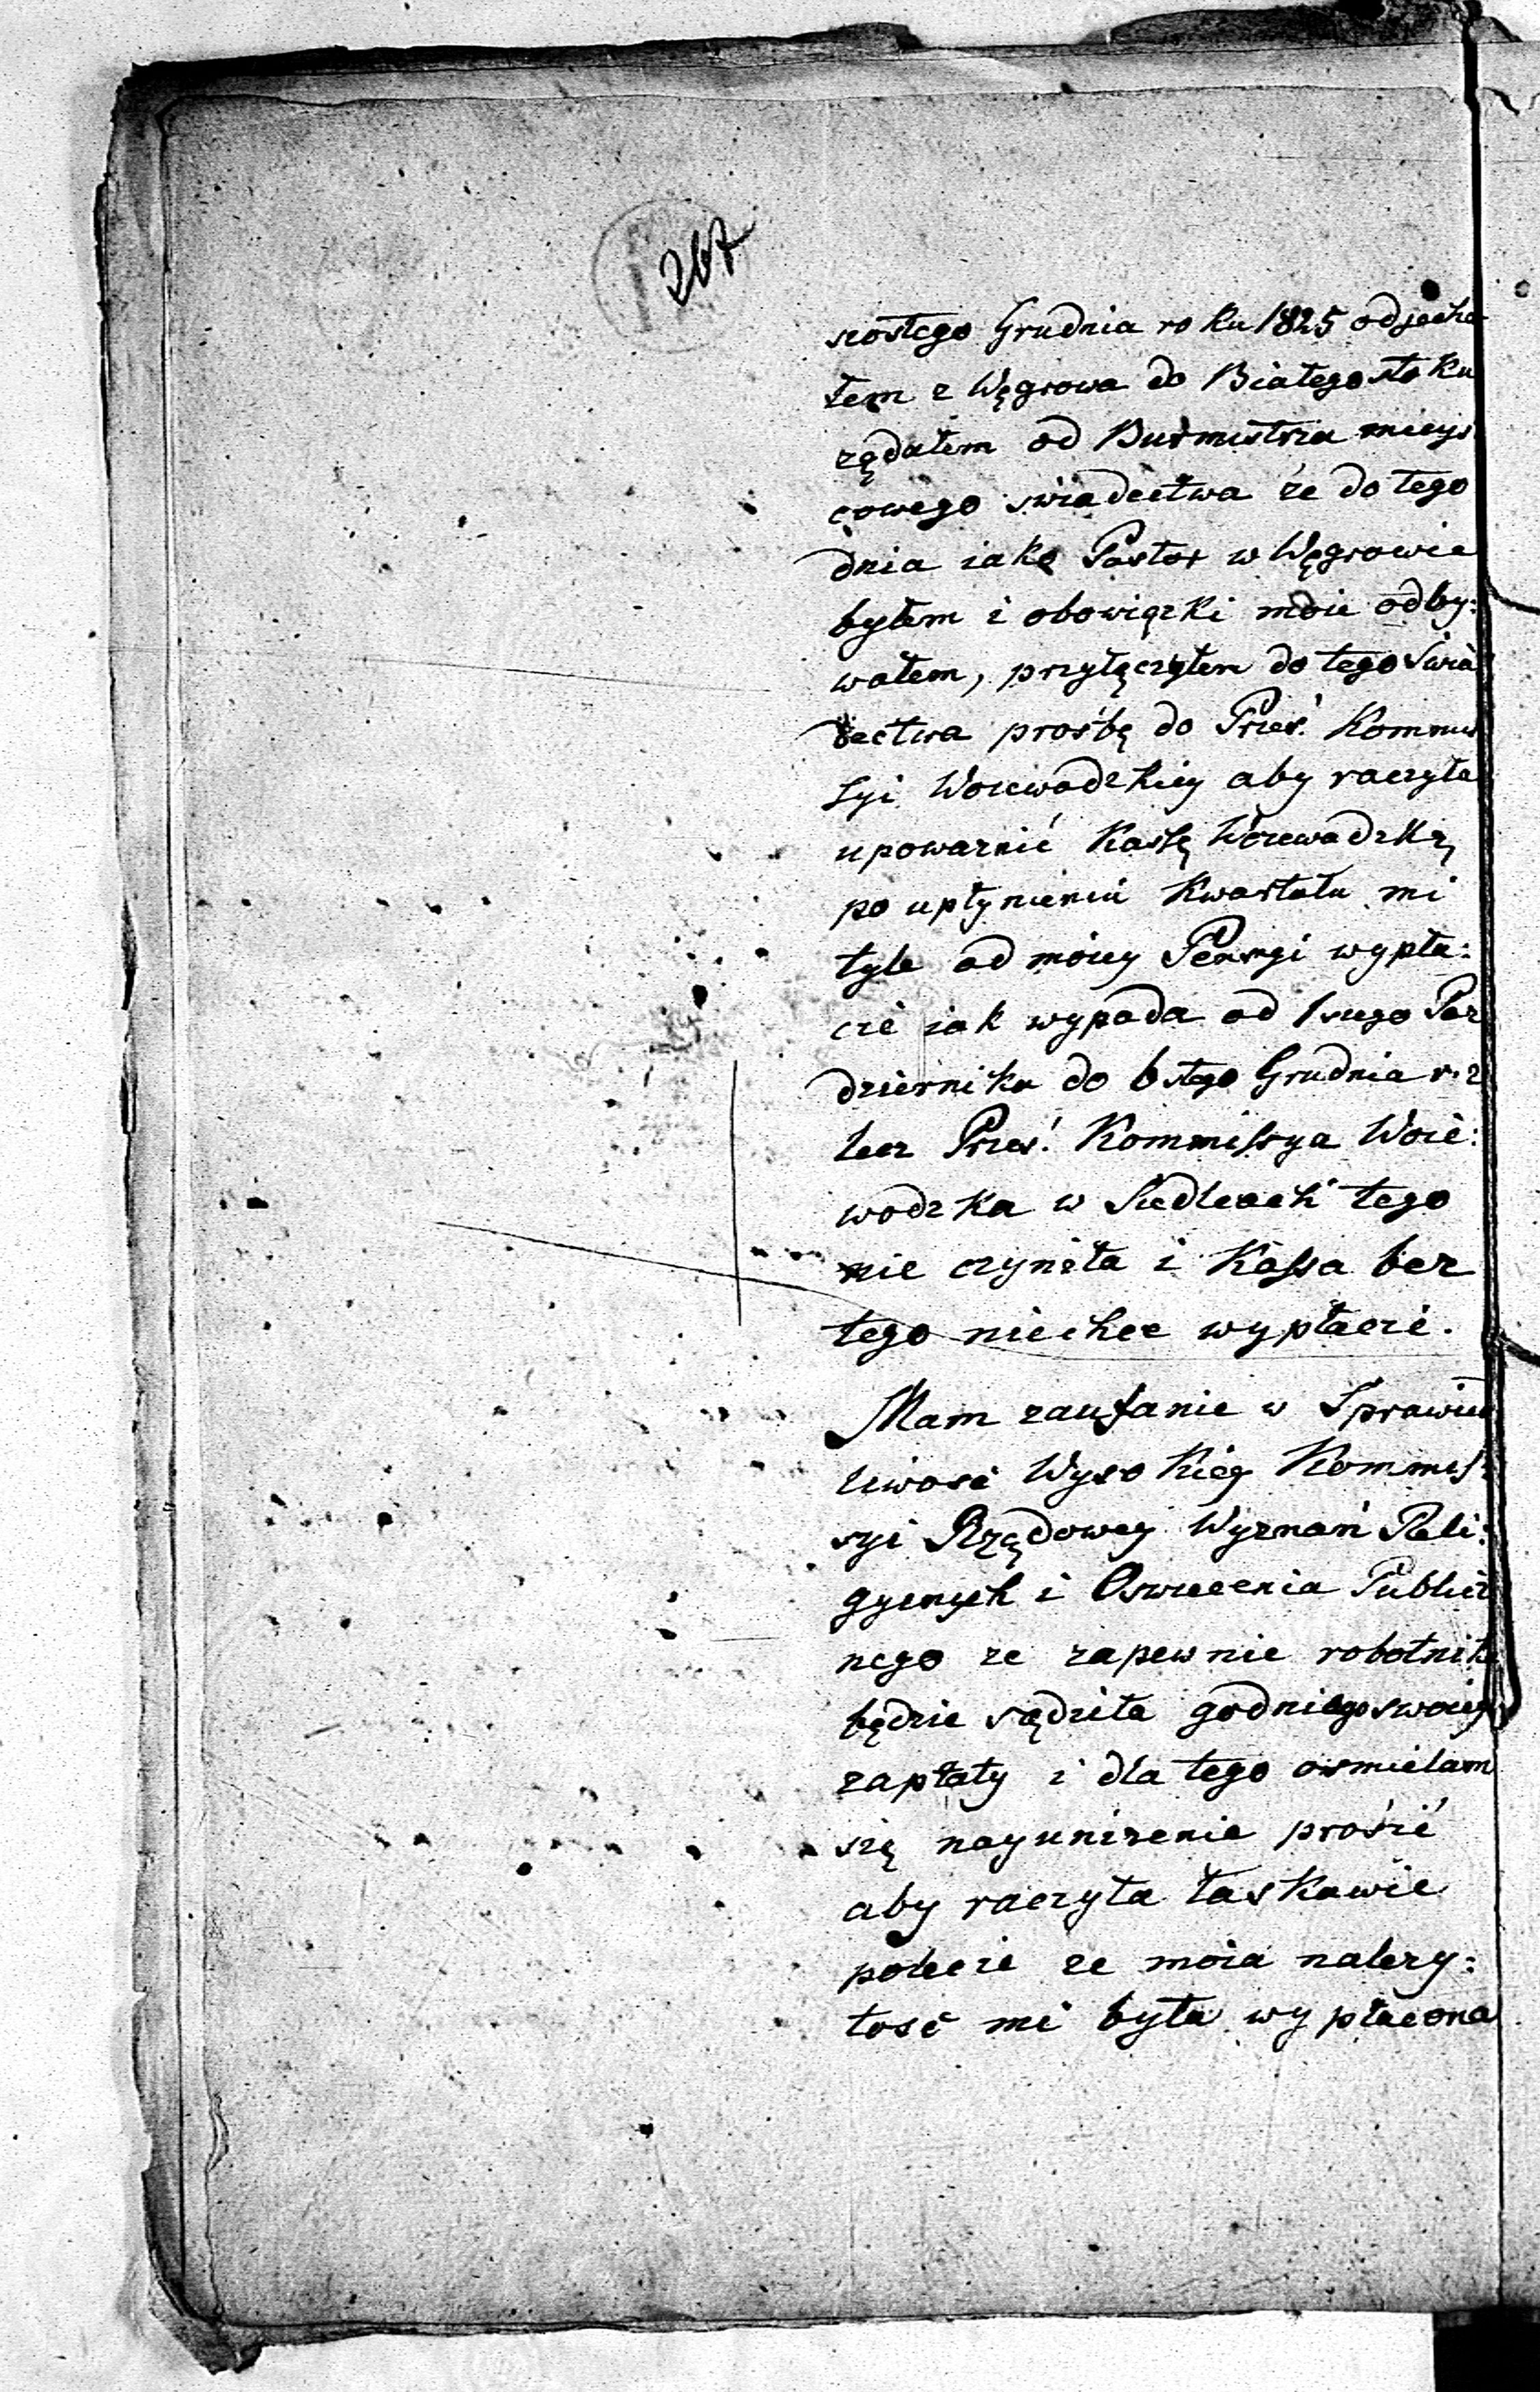 267
szostego Grudnia roku 1825 odjecha
łem z Węgrowa do Białegostoku
rządałem od Burmistrza mieys
cowego swiadectwa że do tego
dnia iako Pastor w Węgrowie
byłem i obowiązki moie odby:
wałem, przyłączyłem do tego Swia
dectwa prośbę do Prześ. Kommis
syi Woiewodzkiey aby raczyła
upowaznić Kassę Woiewodzką
po upłynieniu Kwartału mi
tyle od moiey Pensyi wypła:
cić iak wypada od 1szego Paz
dziernika do 6stego Grudnia r. z
lecz Prześ. Kommissya Woie:
wodzka w Siedlcach tego
nie czyniła i Kassa bez
tego niechce wypłacić.
Mam zaufanie w Sprawied
liwość Wysokiey Kommis
syi Rządowey Wyznań Reli:
gyinych i Oswiecenia Publicz
nego ze zapewnie robotnika
będzie sądziła godniego swoiey
zapłaty i dla tego osmielam
się nayunizenie prosić
aby raczyła łaskawie
polecić ze moia nalezy:
tość mi była wypłacona